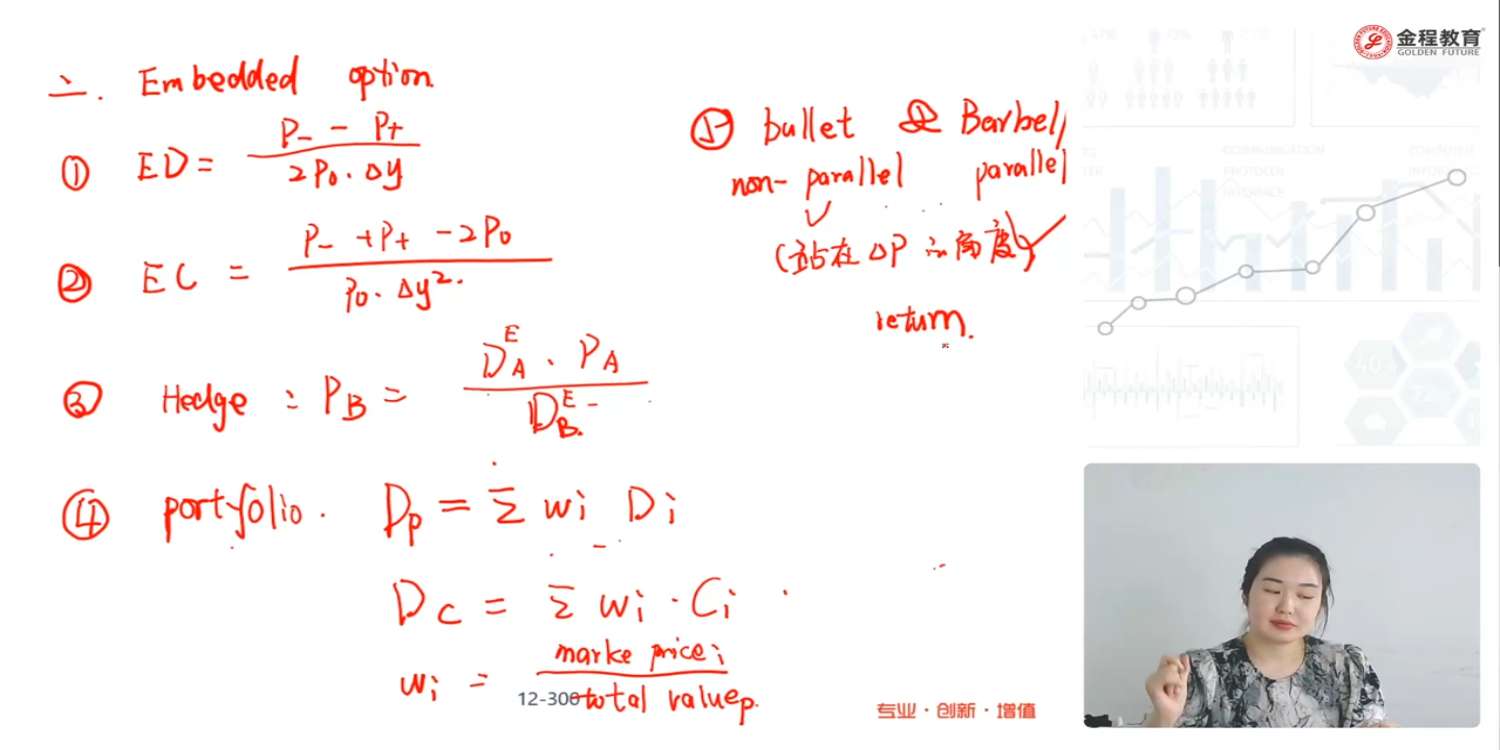 二. Embedded option
① ED = P₋ - P₊
2P₀·Δy
② EC = P₋ + P₊ - 2P₀
P₀·Δy².
③ Hedge : P_B = D_A^E · P_A
D_B^E
④ portfolio. D_p = Σ wi Di
D_C = Σ wi · Ci
wi = marke price i
total value p.
⑤ bullet & Barbell
non-parallel parallel
(站在 ΔP 的角度)
return.
12-300
专业·创新·增值
金程教育
GOLDEN FUTURE